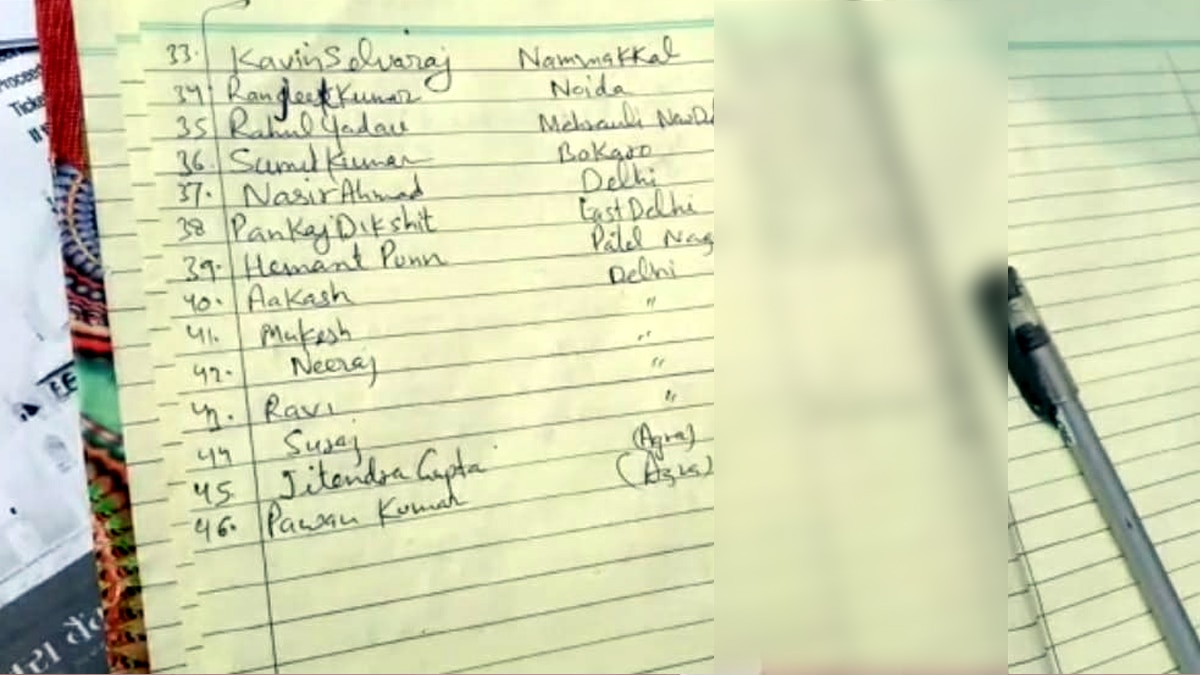 Proceed
Ticke
33. Kavin Selvaraj Nammakkal
34. Ranjeet Kumar Noida
35 Rahul Yadav Mehrauli New D
36. Sumit Kumar Bokaro
37. Nasir Ahmad Delhi
38 Pankaj Dikshit East Delhi
39. Hemant Punn Patel Nag
40. Aakash Delhi
41. Mukesh "
42. Neeraj "
43. Ravi "
44 Suraj "
45 Jitendra Gupta (Agra)
46. Pawan Kumar (Agra)